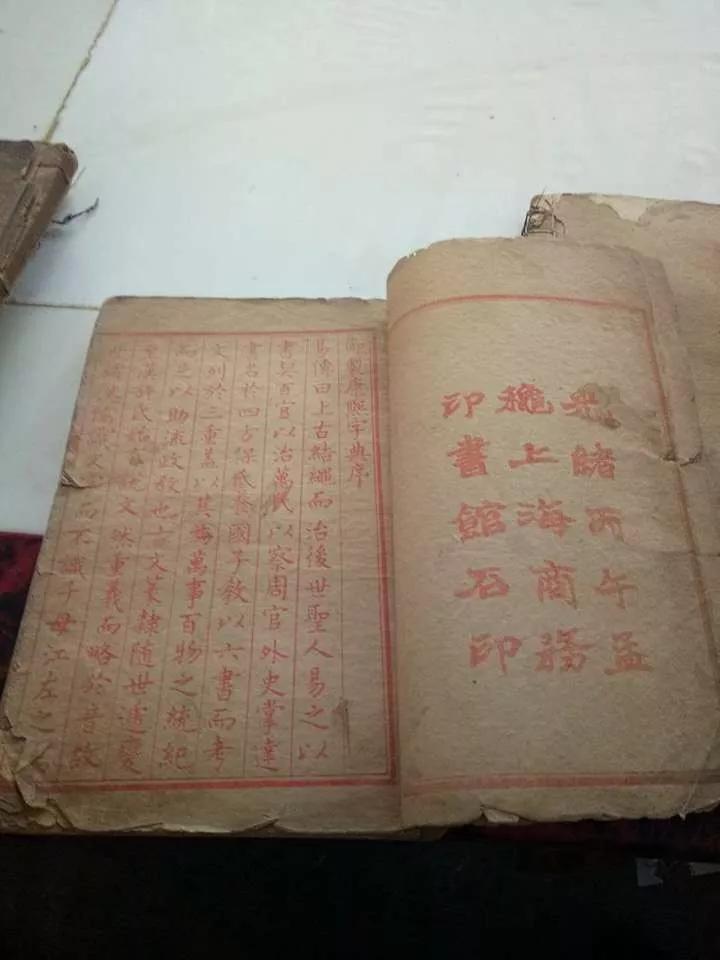 光緒丙午孟
穐上海商務
印書館石印
御製康熙字典序
易傳曰上古結繩而治後世聖人易之以
書契百官以治萬民以察周官外史掌達
書名於四方保氏養國子教以六書而考
文列於三重蓋以其為萬事百物之統紀
而足以助流政教也古文篆隸隨世遞變
至漢許氏始有說文然重義而略於音故
而不識子母江左之